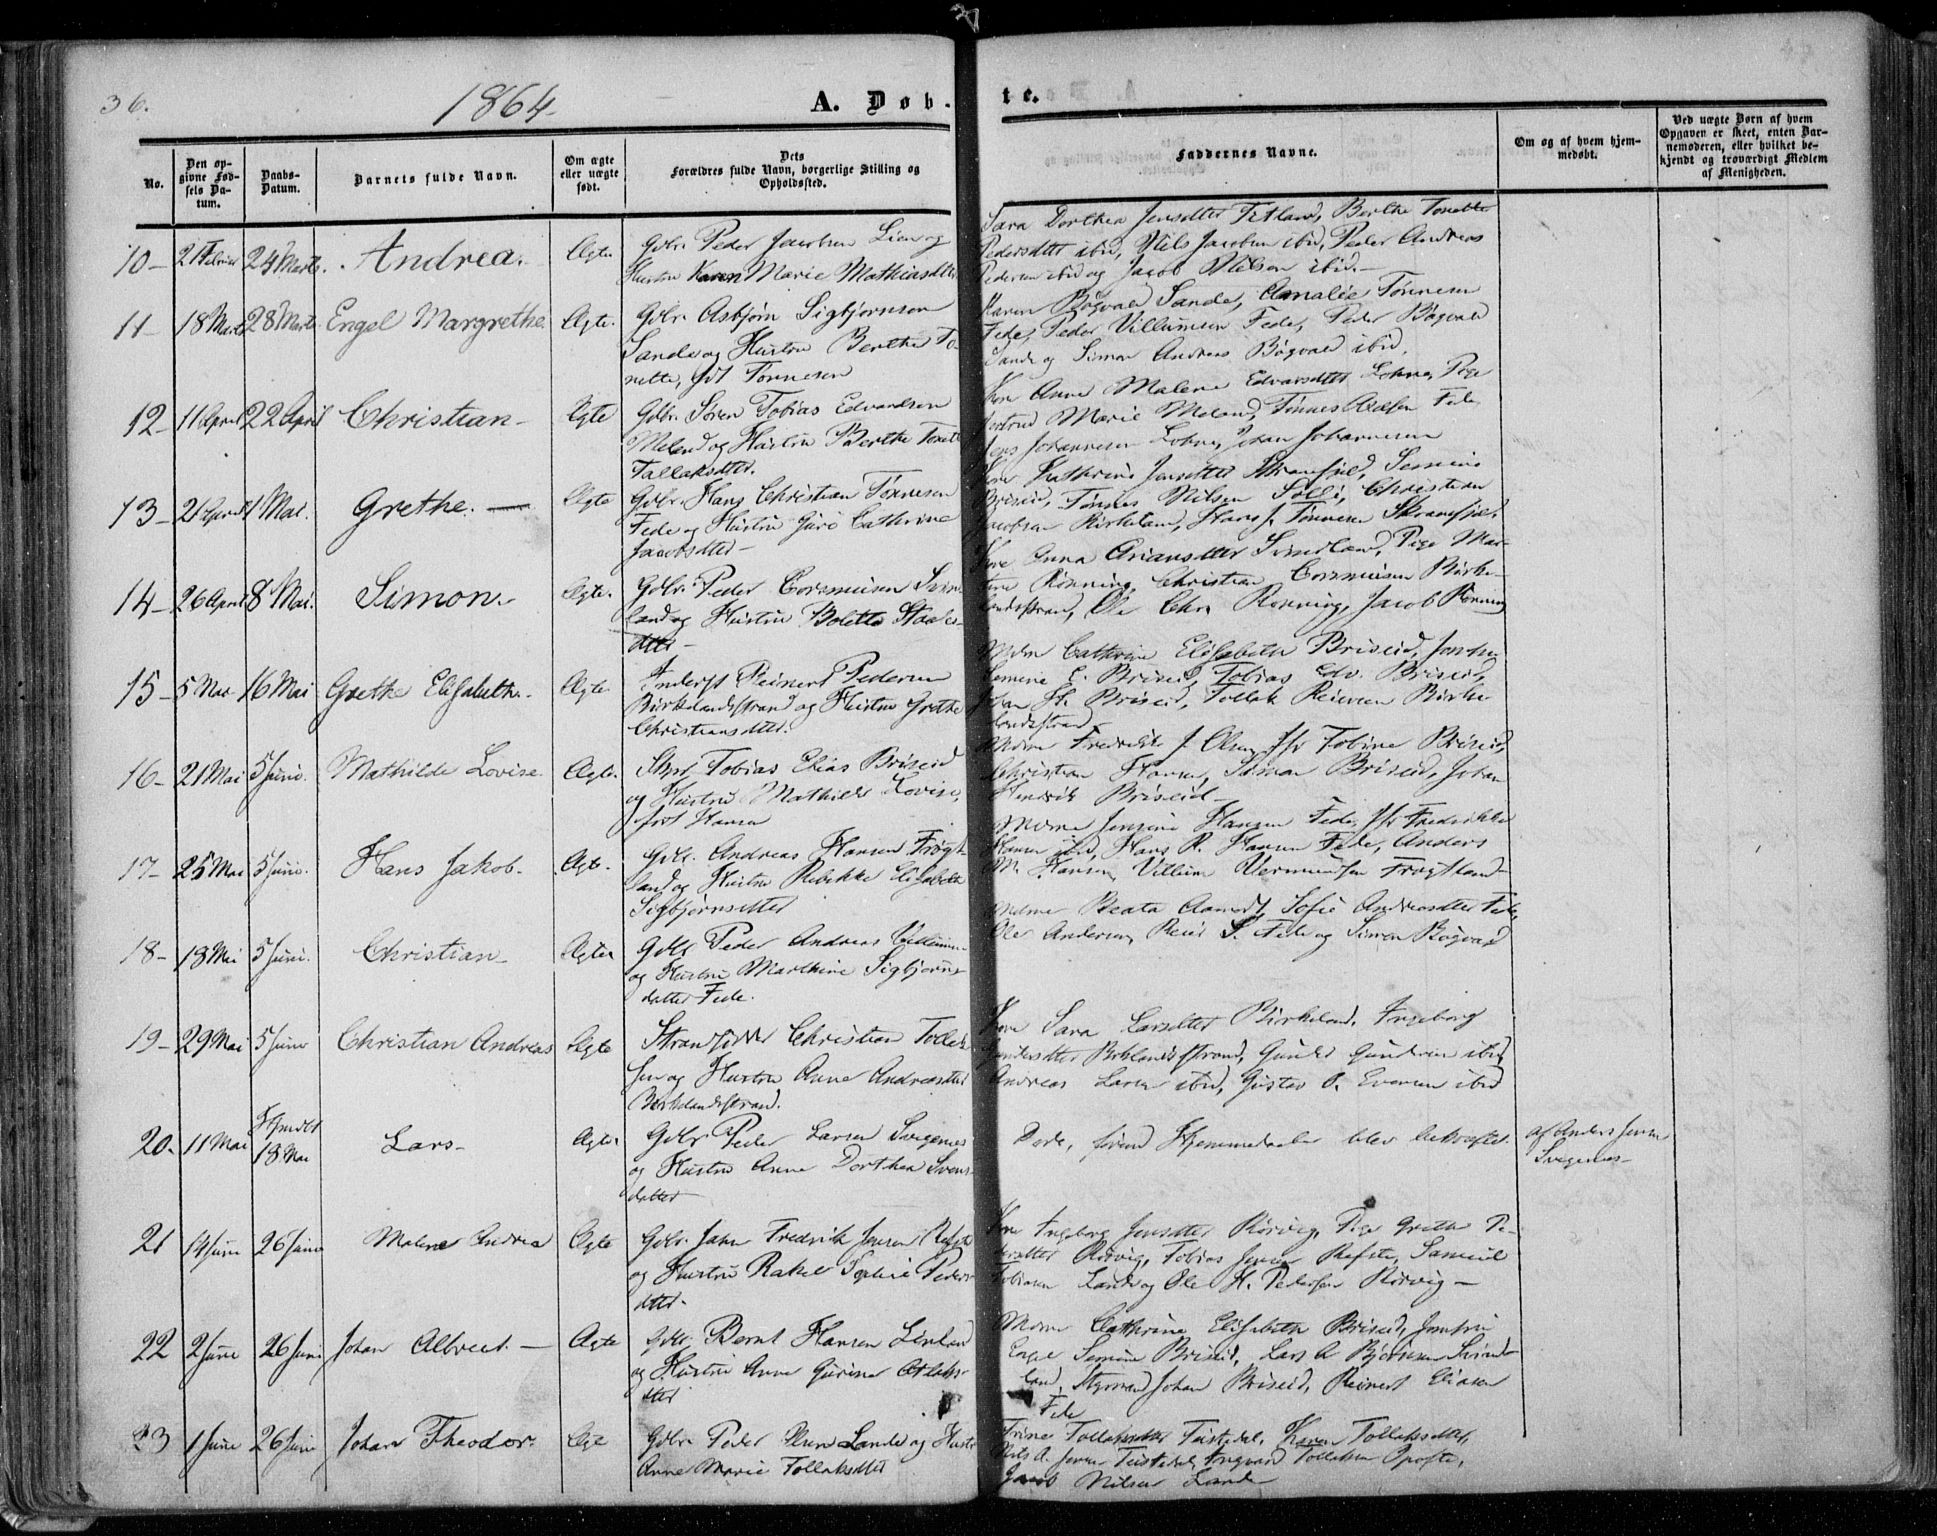 36.
1864.
A. Døb-
te.
No.
Den op-
givne Fød-
sels Da-
tum.
Daabs-
Datum.
Barnets fulde Navn.
Om ægte
eller uægte
født.
Dets
Forældres fulde Navn, borgerlige Stilling og
Opholdssted.
Faddernes Navne.
Om og af hvem hjem-
medøbt.
Ved uægte Børn af hvem
Opgaven er skeet, enten Bar-
nemoderen, eller hvilket be-
kjendt og troværdigt Medlem
af Menigheden.
10- 24 Marts. Andrea. Ægte. Gdbr. Peder Jacobsen Lien og
Hustru Karen Marie Mathiasdtter
Sara Dorthea Jensdtter Fetland, Berthe Tonette
Pedersdtter ibid, Nils Jacobsen ibid, Peder Andreas
Pedersen ibid og Jacob Nilsen ibid.-
11- 18 Marts 28 Marts. Engel Margrethe. Ægte. Gdbr. Asbjørn Sigbjørnson
Sande og Hustru Berthe To-
nette, fdt Tønnesen
Karen Bøgvald Sande, Amalie Tønnesen
Fede, Peder Villumsen Fede, Peder Bøgvald
Sande og Simon Andreas Bøgvald ibid.
12- 11 April 22 April Christian- Ægte Gdbr. Søren Tobias Edvardsen
Meland og Hustru Berthe Tonette
Tallaksdtter.
Kone Anne Malene Edvarsdtter Lohne, Pige
Marie Meland, Tønnes Fede,
Jens Johannesen Lohne, Johan Johannesen
13- 21 April 1 Mai. Grethe.- Ægte Gdbr. Hans Christian Tønnesen
Fede og Hustru Guro Cathrine
Jacobsdtter-
Kone Kathrine Jensdtter Skranefjel, Semine
Briseid, Tønnes Nilsen Solli, Christian
Jacobsen Birkeland, Hans J. Tønnesen Skranefjel
14- 26 April 8 Mai. Simon. Ægte. Gdbr. Peder Corsmusen Svin-
land og Hustru Bolette
dtter-
Kone Anna Ariansdtter Svindland, Pige Mar-
tine Rønning, Christian Corsmusen Birke-
landsstrand, Ole Chr. Rønning, Jacob Rønning
15- 5 Mai 16 Mai Grethe Elisabeth. Ægte. Inderst Reinert Pedersen
Birkelandsstrand og Hustru Grethe
Christiansdtter.
Mdme Cathrine Elisabeth Briseid, Jomfru
Semine E. Briseid, Tobias Edv. Briseid,
Johan H. Briseid, Tollak Reiersen Birke-
landsstrand
16- 21 Mai 5 Juni. Mathilde Lovise. Ægte. Skpr Tobias Elias Briseid
og Hustru Mathilde Lovise,
født Hansen
Mdme Fredrikke J. Olsen, Jfr Tobine Briseid,
Christian Hansen, Simon Briseid, Johan
Henrik Briseid-
17- 25 Mai 5 Juni. Hans Jakob- Ægte. Gdbr. Andreas Hansen Frøyt-
land og Hustru Rebekke Elisabeth
Sigbjørnsdtter
Mdme Jensine Hansen Fede, Jfr Fredrikke
Hansen ibid, Hans R. Hansen Fede, Anders
M. Hansen, Villum Vermundsen Frøytland-
18- 18 Mai 5 Juni. Christian- Ægte Gdbr Peder Andreas Villumsen
og Hustru Marthine Sigbjørns-
datter Fede.
Mdme Beata Aamodt, Sofie Andreasdtter Fede,
Ole Andersen, Reier S. Fede og Simon Bøgvald
19- 29 Mai 5 Juni Christian Andreas Ægte Strandsidder Christian Tollak-
sen og Hustru Anne Andreasdtter
Birkelandsstrand.
Kone Sara Larsdtter Birkeland, Ingeborg
Gundersdtter Birklandsstrand, Gunder Gundersen ibid
Andreas Larsen ibid, Gustav O. Evensen ibid
20- 11 Mai Hjmdbt
18 Mai Lars- Ægte. Gdbr Peder Larsen Svegenes
og Hustru Anne Dorthea Svens-
datter
Døde, førend Hjemmedaaben blev bekræftet. af Anders Jensen
Svegenes-
21 14 Juni 26 Juni Malene Andrea Ægte Gdbr. John Fredrik Jensen Refste
og Hustru Rakel Sophie Peders-
dtter.
Kone Ingeborg Jensdtter Rørvig, Pige Grethe Pe-
dersdtter Rørvig, Tobias Jensen Refste, Samuel
Tobiasen Lande og Ole H. Pedersen Rørvig-
22 2 Juni 26 Juni Johan Albreet.- Ægte Gdbr. Bernt Hansen Lindland
og Hustru Anne Gurine Atlaks-
dtter
Mdme Cathrine Elisabeth Briseid, Jomfru
Engel Semine Briseid, Lars A Bjørnsen Svind-
land, Styrmand Johan Briseid, Reinert Eliasen
Fede
23 1 Juni 26 Juni Johan Theodor. Ægte Gdbr. Peder Olsen Lande og Hustru
Anne Marie Tollaksdtter
Trine Tollaksdtter Teistedal, Karen Tollaksdtter,
Nils A. Jensen Teistedal, Ingvald Tollaksen Opofte,
Jacob Nilsen Lande